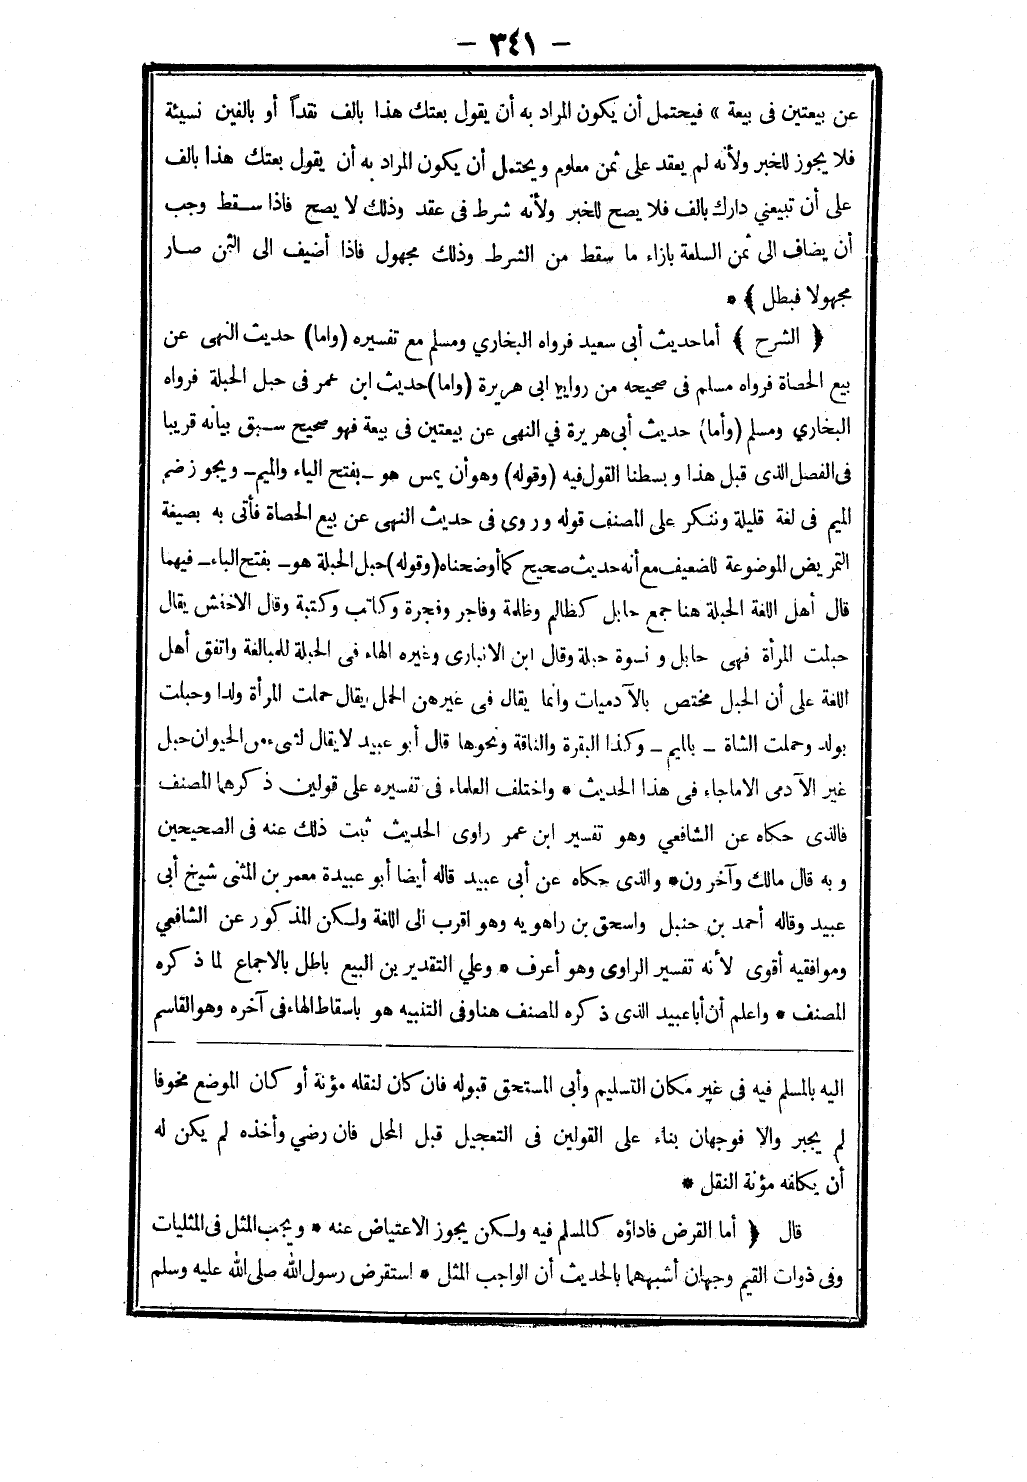 - ٣٤١ -
عن بيعتين فى بيعة » فيحتمل أن يكون المراد به أن يقول بعتك هذا بالف نقداً أو بالفين نسيئة
فلا يجوز للخبر ولأنه لم يعقد على ثمن معلوم ويحتمل أن يكون المراد به أن يقول بعتك هذا بالف
على أن تبيعني دارك بالف فلا يصح للخبر ولأنه شرط فى عقد وذلك لا يصح فاذا سقط وجب
أن يضاف الى ثمن السلعة بازاء ما سقط من الشرط وذلك مجهول فاذا أضيف الى الثمن صار
مجهولا فبطل ﴾ *
﴿ الشرح ﴾ أما حديث أبى سعيد فرواه البخاري ومسلم مع تفسيره (واما) حديث النهى عن
بيع الحصاة فرواه مسلم فى صحيحه من رواية ابى هريرة (واما) حديث ابن عمر فى حبل الحبلة فرواه
البخاري ومسلم (وأما) حديث أبى هريرة في النهى عن بيعتين فى بيعة فهو صحيح سبق بيانه قريبا
فى الفصل الذى قبل هذا وبسطنا القول فيه (وقوله) وهو أن يمس هو ـ بفتح الياء والميم ـ ويجوز ضم
الميم فى لغة قليلة وننكر على المصنف قوله وروى فى حديث النهى عن بيع الحصاة فأتى به بصيغة
التمريض الموضوعة للضعيف مع أنه حديث صحيح كما أوضحناه (وقوله) حبل الحبلة هو ـ بفتح الباء ـ فيهما
قال أهل اللغة الحبلة هنا جمع حابل كظالم وظلمة وفاجر وفجرة وكاتب وكتبة وقال الاخفش يقال
حبلت المرأة فهى حابل ونسوة حبلة وقال ابن الانبارى وغيره الهاء فى الحبلة للمبالغة واتفق أهل
اللغة على أن الحبل مختص بالآدميات وانما يقال فى غيرهن الحمل يقال حملت المرأة ولدا وحبلت
بولد وحملت الشاة ـ بالميم ـ وكذا البقرة والناقة ونحوها قال أبو عبيد لا يقال لشىء من الحيوان حبل
غير الآدمى الا ما جاء فى هذا الحديث * واختلف العلماء فى تفسيره على قولين ذكرهما المصنف
فالذى حكاه عن الشافعي وهو تفسير ابن عمر راوى الحديث ثبت ذلك عنه فى الصحيحين
وبه قال مالك وآخرون * والذى حكاه عن أبى عبيد قاله أيضا أبو عبيدة معمر بن المثنى شيخ أبى
عبيد وقاله أحمد بن حنبل واسحق بن راهويه وهو اقرب الى اللغة ولكن المذكور عن الشافعي
وموافقيه أقوى لأنه تفسير الراوى وهو أعرف * وعلي التقديرين البيع باطل بالاجماع لما ذكره
المصنف * واعلم أن أبا عبيد الذى ذكره المصنف هنا وفى التنبيه هو باسقاط الهاء فى آخره وهو القاسم
اليه بالمسلم فيه فى غير مكان التسليم وأبى المستحق قبوله فان كان لنقله مؤنة أو كان الموضع مخوفا
لم يجبر والا فوجهان بناء على القولين فى التعجيل قبل المحل فان رضي وأخذه لم يكن له
أن يكلفه مؤنة النقل *
قال ﴿ أما القرض فاداؤه كالمسلم فيه ولكن يجوز الاعتياض عنه * ويجب المثل فى المثليات
وفى ذوات القيم وجهان أشبههما بالحديث أن الواجب المثل * استقرض رسول الله صلى الله عليه وسلم